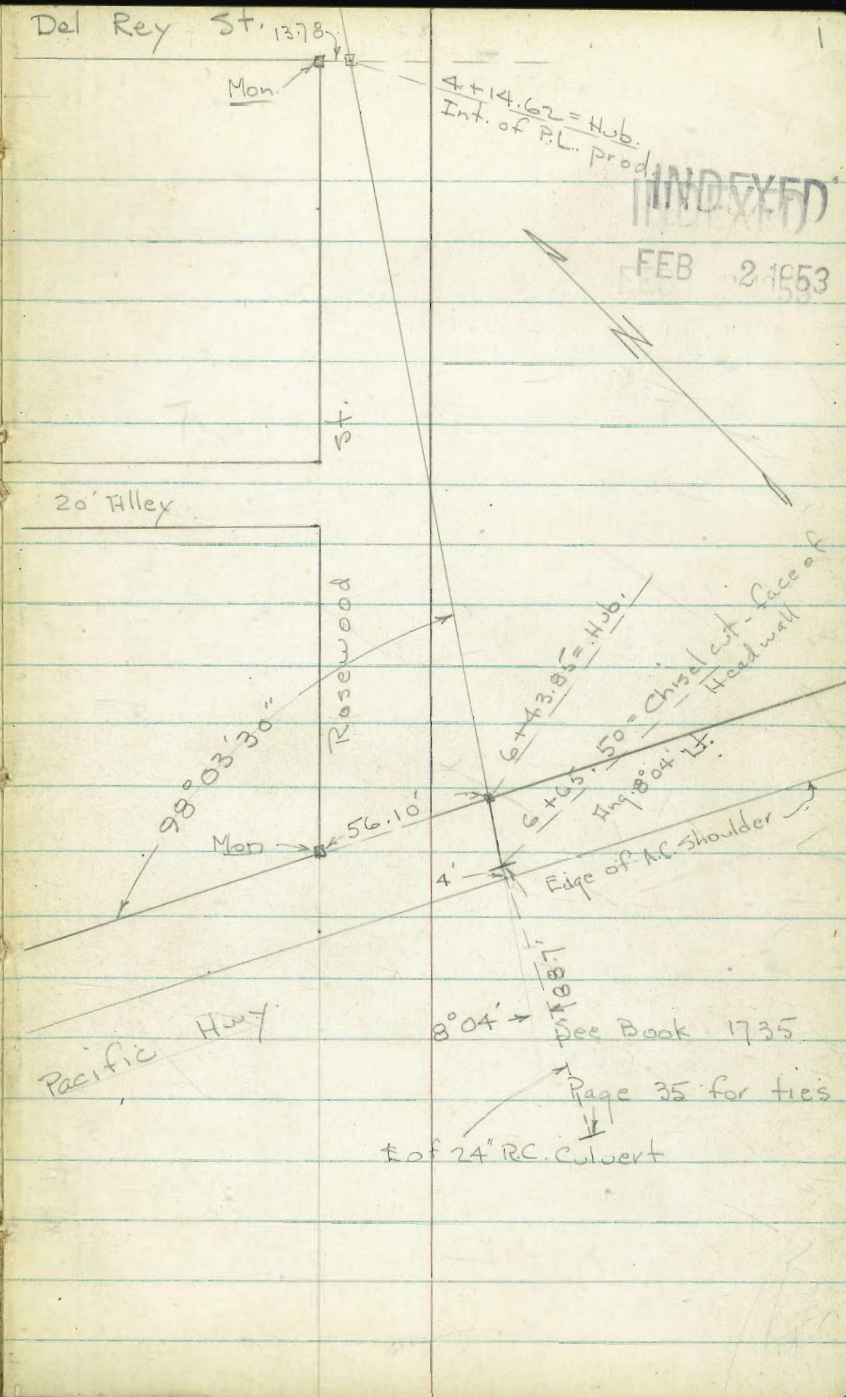 Del Rey St.
13.78
1
Mon.
4+14.62 = Hub.
Int. of P.L. prod.
INDEXED
FEB 2 1953
St.
20' Alley
Rosewood
98°03'30"
6+43.85 = Hub.
6+65.50 = Chisel cut - face of
Headwall
Ang. 8°04' Lt.
56.10'
Mon
4'
Edge of A.C. Shoulder
Pacific Hwy.
88.7'
8°04'
See Book 1735
Page 35 for ties
℄ of 24" R.C. Culvert